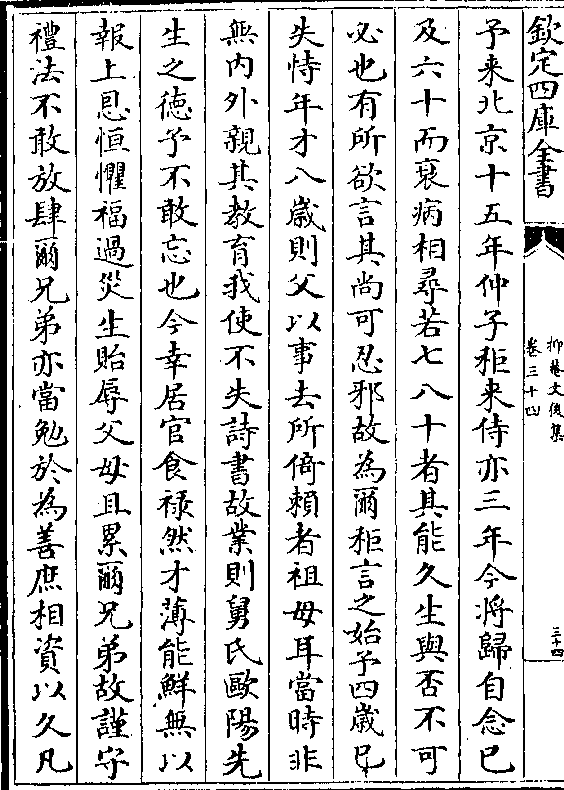 欽定四庫全書
抑菴文後集
卷三十四
三十四
予来北京十五年仲子秬来侍亦三年今将歸自念已
及六十而衰病相尋若七八十者其能久生與否不可
必也有所欲言其尚可忍邪故為爾秬言之始予四歲已
失恃年才八歲則父以事去所倚賴者祖母耳當時非
無内外親其教育我使不失詩書故業則舅氏歐陽先
生之徳予不敢忘也今幸居官食禄然才薄能鮮無以
報上恩恒懼福過災生貽辱父母且累爾兄弟故謹守
禮法不敢放肆爾兄弟亦當勉於為善庶相資以久凡